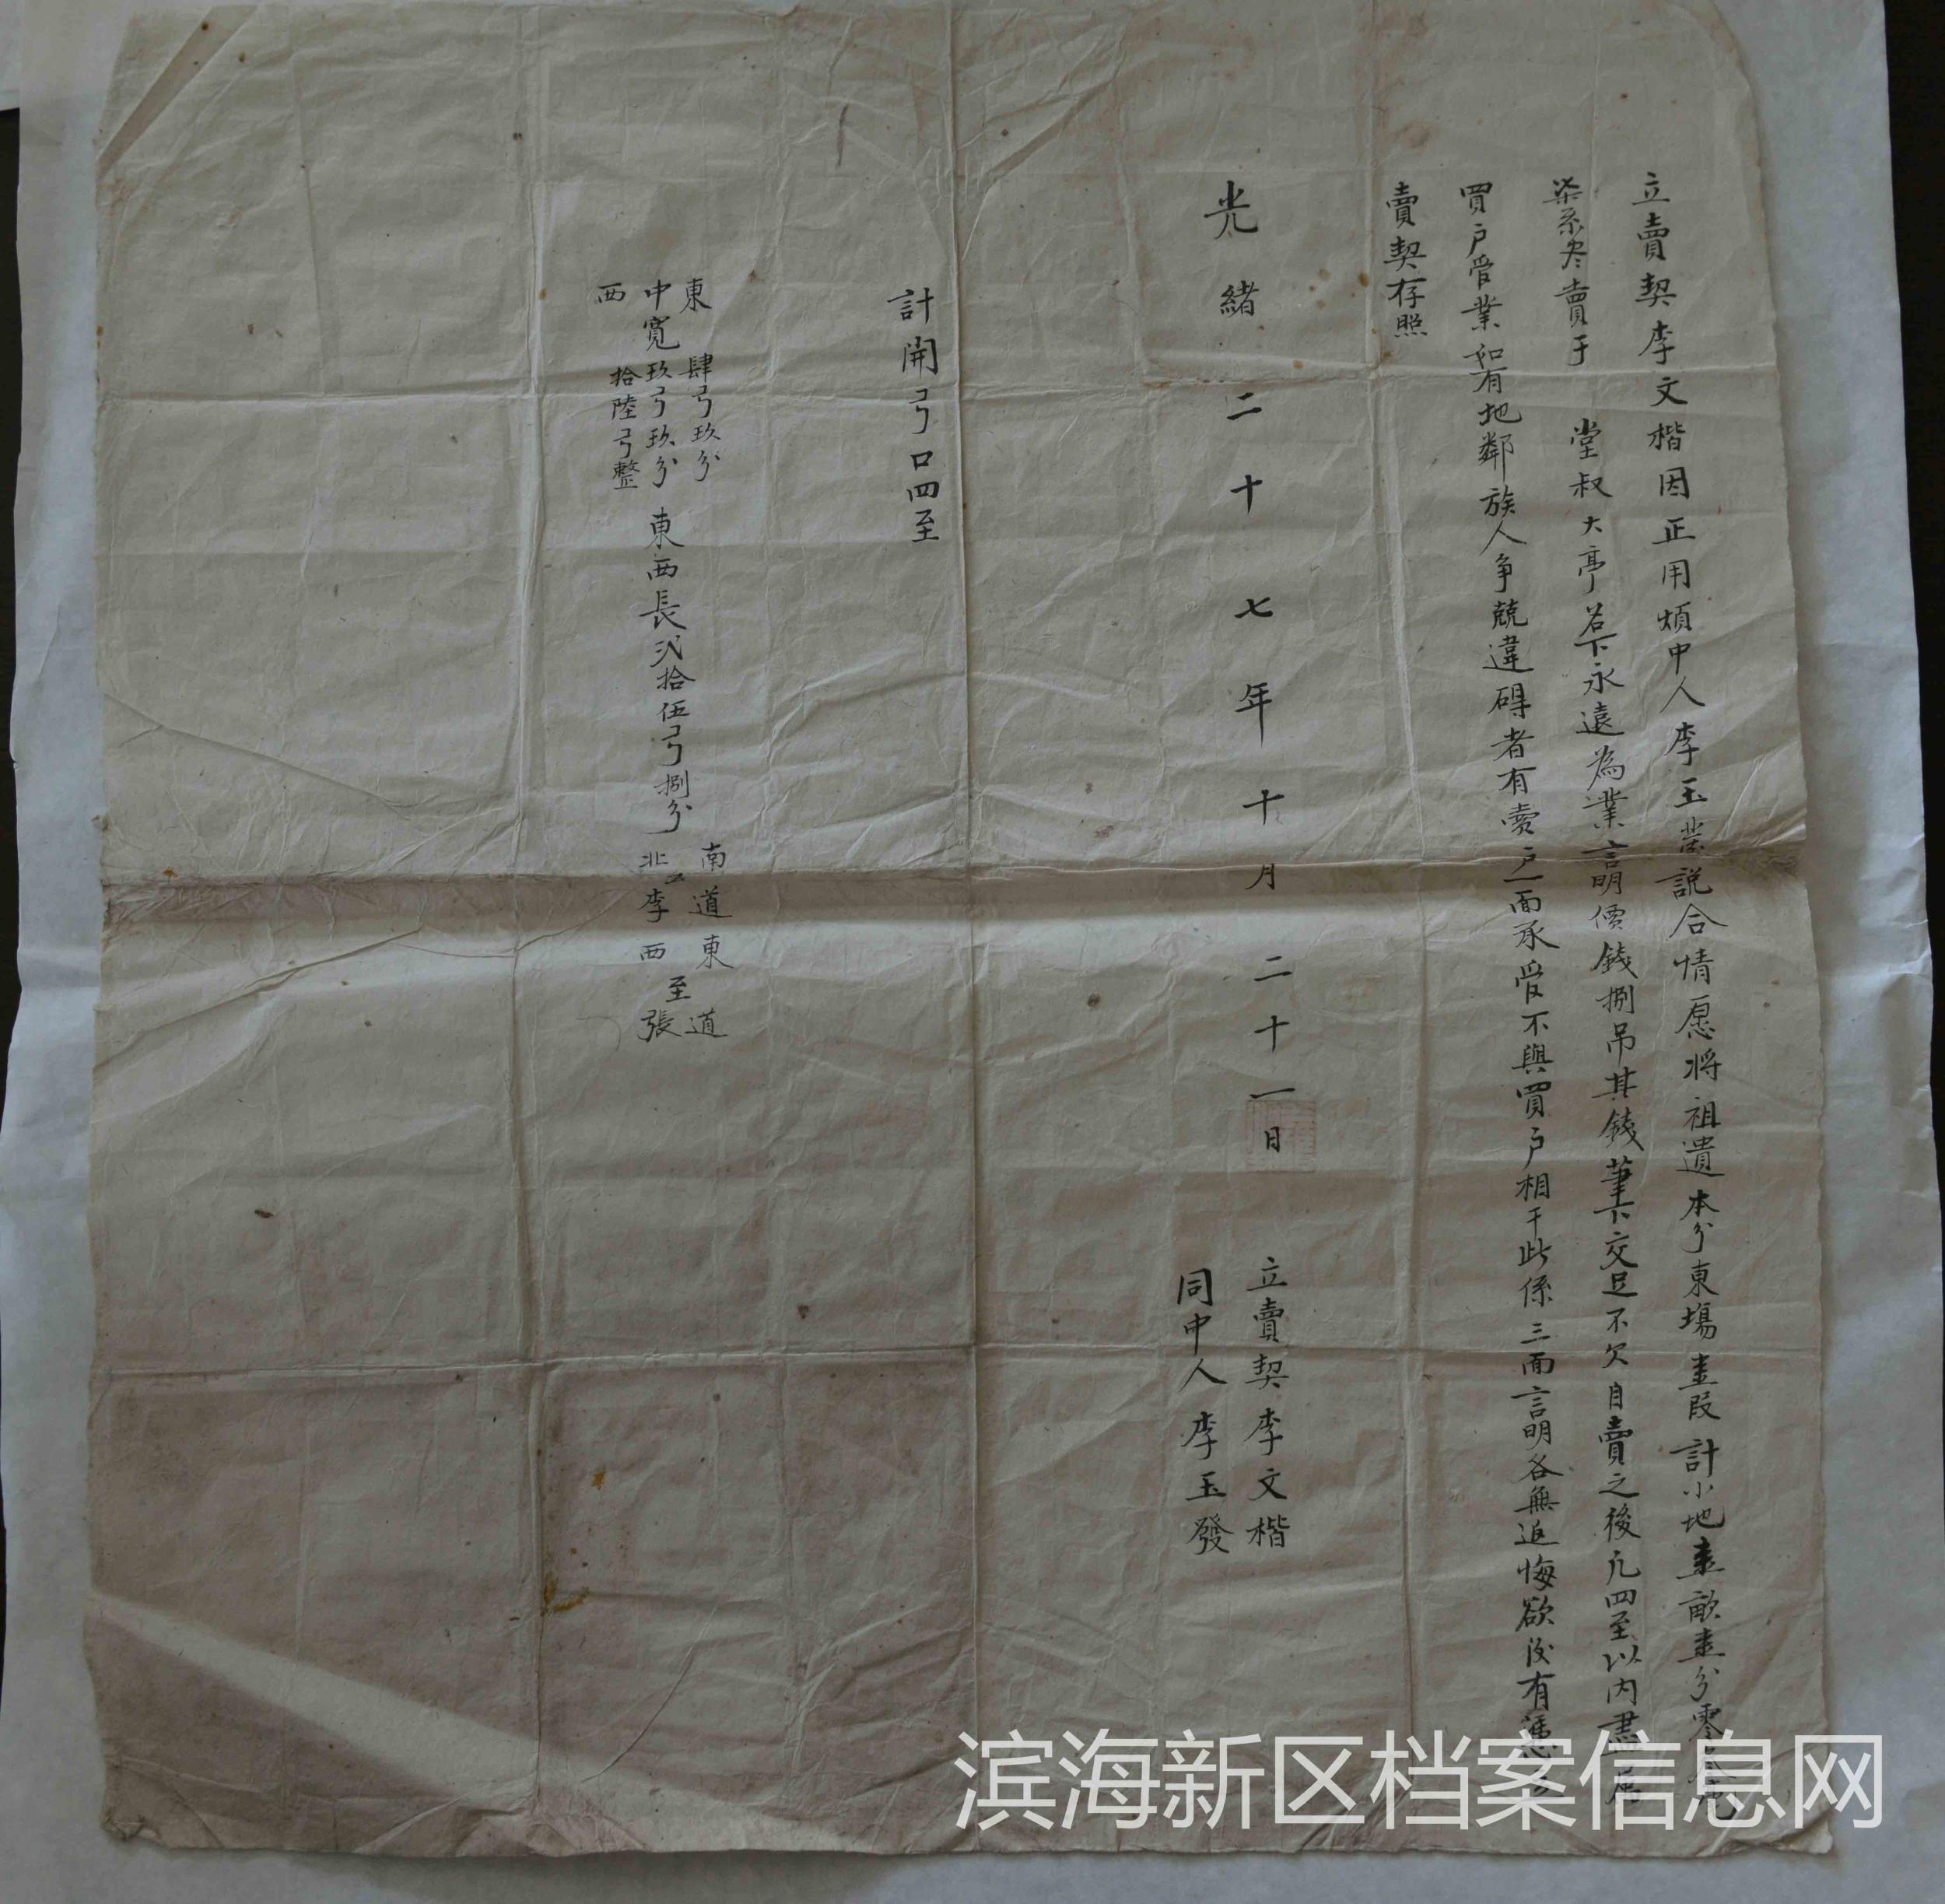 立賣契李文楷因正用煩中人李玉發説合情愿將祖遺本分東塲壹叚計小地壹畝壹分零
柒系尽賣于 堂叔大亭名下永遠為業言明價錢捌吊其錢筆下交足不欠自賣之後凢四至以内盡属
買戶管業如有地鄰族人争競違碍者有賣戶一面承管不與買戶相干此係三面言明各無返悔欲後有憑立
賣契存照
光緒二十七年十月二十一日
立賣契李文楷
同中人李玉發
計開弓口四至
東 肆弓玖分
中寬玖弓玖分
西 拾陸弓整
東西長弍拾伍弓捌分
南道 東至道
北李 西至張
滨海新区档案信息网